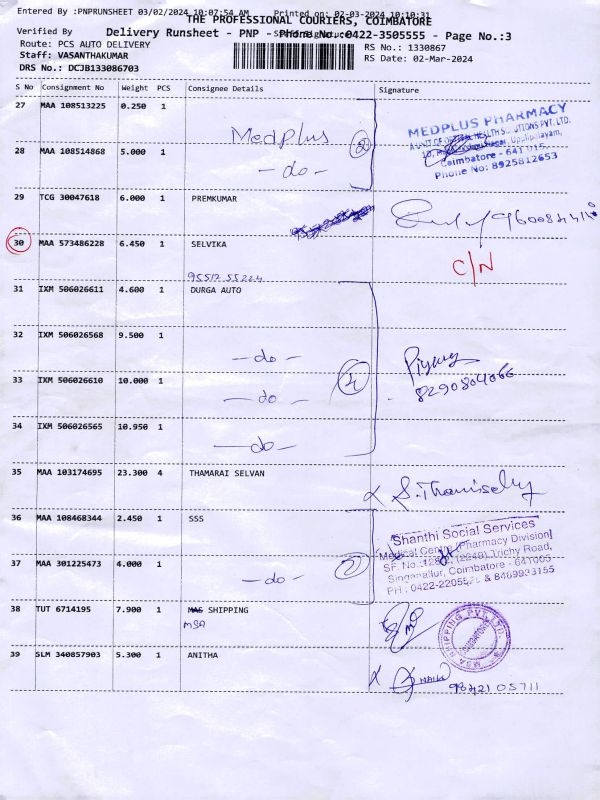 Entered By :PNPRUNSHEET 03/02/2024 10:07:54 AM Printed on: 02-03-2024 10:10:31
THE PROFESSIONAL COURIERS, COIMBATORE
Verified By
Delivery Runsheet - PNP - Phone No.:0422-3505555 - Page No.:3
Route: PCS AUTO DELIVERY
RS No.: 1330867
Staff: VASANTHAKUMAR
RS Date: 02-Mar-2024
DRS No.: DCJB133086703
S No Consignment No Weight PCS Consignee Details Signature
27 MAA 108513225 0.250 1
Medplus
2
MEDPLUS PHARMACY
Coimbatore - 641 015.
Phone No: 8925812653
28 MAA 108514868 5.000 1
- do -
29 TCG 30047618 6.000 1 PREMKUMAR
30 MAA 573486228 6.450 1 SELVIKA
C/N
31 IXM 506026611 4.600 1 DURGA AUTO
32 IXM 506026568 9.500 1
- do -
4
Piyush
8290804066
33 IXM 506026610 10.000 1
- do -
34 IXM 506026565 10.950 1
- do -
35 MAA 103174695 23.300 4 THAMARAI SELVAN
36 MAA 108468344 2.450 1 SSS
Shanthi Social Services
Medical Centre [Pharmacy Division]
Trichy Road,
Singanallur, Coimbatore - 641005
37 MAA 301225473 4.000 1
- do -
2
38 TUT 6714195 7.900 1 MAS SHIPPING
MSA
MSA SHIPPING PVT LTD
39 SLM 340857903 5.300 1 ANITHA
98421 05711